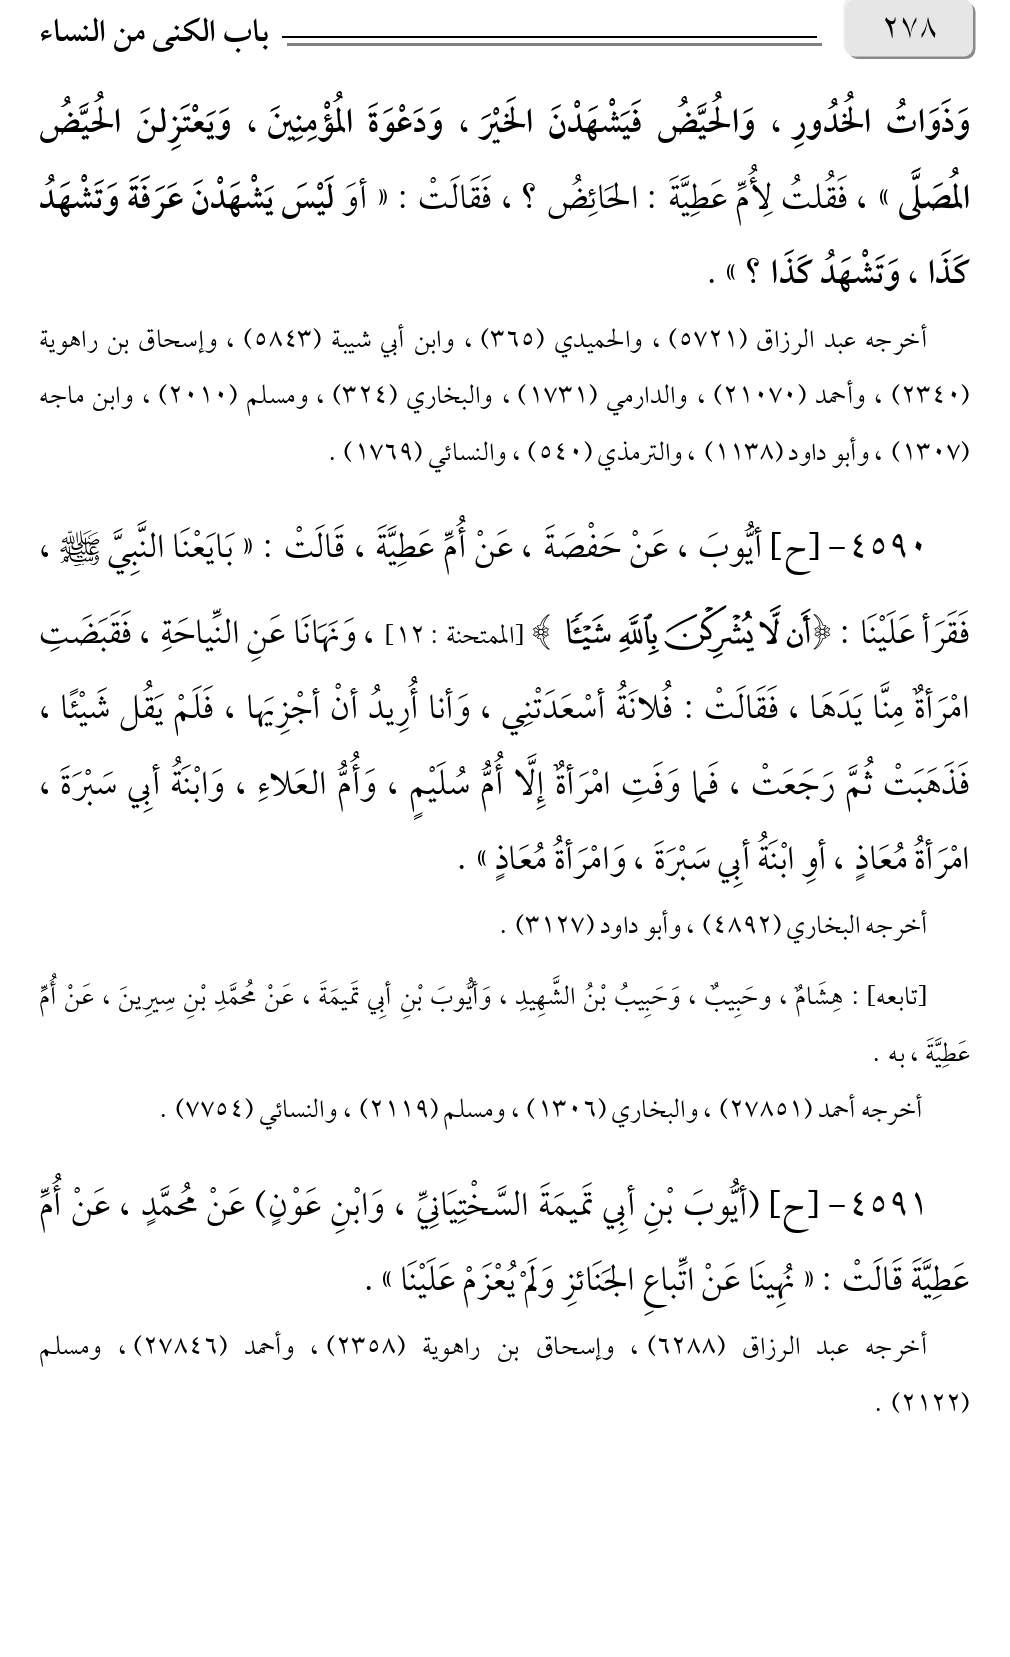 ٢٧٨ باب الكنى من النساء
وَذَوَاتُ الخُدُورِ ، وَالحُيَّضُ فَيَشْهَدْنَ الخَيْرَ ، وَدَعْوَةَ المُؤْمِنِينَ ، وَيَعْتَزِلنَ الحُيَّضُ
المُصَلَّى » ، فَقُلتُ لِأُمِّ عَطِيَّةَ : الحَائِضُ ؟ ، فَقَالَتْ : « أوَ لَيْسَ يَشْهَدْنَ عَرَفَةَ وَتَشْهَدُ
كَذَا ، وَتَشْهَدُ كَذَا ؟ » .
أخرجه عبد الرزاق (٥٧٢١) ، والحميدي (٣٦٥) ، وابن أبي شيبة (٥٨٤٣) ، وإسحاق بن راهوية
(٢٣٤٠) ، وأحمد (٢١٠٧٠) ، والدارمي (١٧٣١) ، والبخاري (٣٢٤) ، ومسلم (٢٠١٠) ، وابن ماجه
(١٣٠٧) ، وأبو داود (١١٣٨) ، والترمذي (٥٤٠) ، والنسائي (١٧٦٩) .
٤٥٩٠- [ح] أيُّوبَ ، عَنْ حَفْصَةَ ، عَنْ أُمِّ عَطِيَّةَ ، قَالَتْ : « بَايَعْنَا النَّبِيَّ ﷺ ،
فَقَرَأ عَلَيْنَا : ﴿أَن لَّا يُشْرِكْنَ بِٱللَّهِ شَيْـًٔا﴾ [الممتحنة : ١٢] ، وَنَهَانَا عَنِ النِّياحَةِ ، فَقَبَضَتِ
امْرَأةٌ مِنَّا يَدَهَا ، فَقَالَتْ : فُلانَةُ أسْعَدَتْنِي ، وَأنا أُرِيدُ أنْ أجْزِيَها ، فَلَمْ يَقُل شَيْئًا ،
فَذَهَبَتْ ثُمَّ رَجَعَتْ ، فَما وَفَتِ امْرَأةٌ إِلَّا أُمُّ سُلَيْمٍ ، وَأُمُّ العَلاءِ ، وَابْنَةُ أبِي سَبْرَةَ ،
امْرَأةُ مُعَاذٍ ، أوِ ابْنَةُ أبِي سَبْرَةَ ، وَامْرَأةُ مُعَاذٍ » .
أخرجه البخاري (٤٨٩٢) ، وأبو داود (٣١٢٧) .
[تابعه] : هِشَامٌ ، وحَبِيبٌ ، وَحَبِيبُ بْنُ الشَّهِيدِ ، وَأيُّوبَ بْنِ أبِي تَمِيمَةَ ، عَنْ مُحَمَّدِ بْنِ سِيرِينَ ، عَنْ أُمِّ
عَطِيَّةَ ، به .
أخرجه أحمد (٢٧٨٥١) ، والبخاري (١٣٠٦) ، ومسلم (٢١١٩) ، والنسائي (٧٧٥٤) .
٤٥٩١- [ح] (أيُّوبَ بْنِ أبِي تَمِيمَةَ السَّخْتِيَانِيِّ ، وَابْنِ عَوْنٍ) عَنْ مُحَمَّدٍ ، عَنْ أُمِّ
عَطِيَّةَ قَالَتْ : « نُهِينَا عَنْ اتِّباعِ الجَنَائزِ وَلَمْ يُعْزَمْ عَلَيْنَا » .
أخرجه عبد الرزاق (٦٢٨٨) ، وإسحاق بن راهوية (٢٣٥٨) ، وأحمد (٢٧٨٤٦) ، ومسلم
(٢١٢٢) .